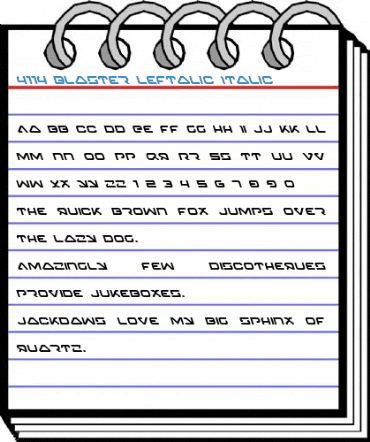 4114 BLASTER LEFTALIC ITALIC
AA BB CC DD EE FF GG HH II JJ KK LL
MM NN OO PP QQ RR SS TT UU VV
WW XX YY ZZ 1 2 3 4 5 6 7 8 9 0
THE QUICK BROWN FOX JUMPS OVER
THE LAZY DOG.
AMAZINGLY FEW DISCOTHEQUES
PROVIDE JUKEBOXES.
JACKDAWS LOVE MY BIG SPHINX OF
QUARTZ.